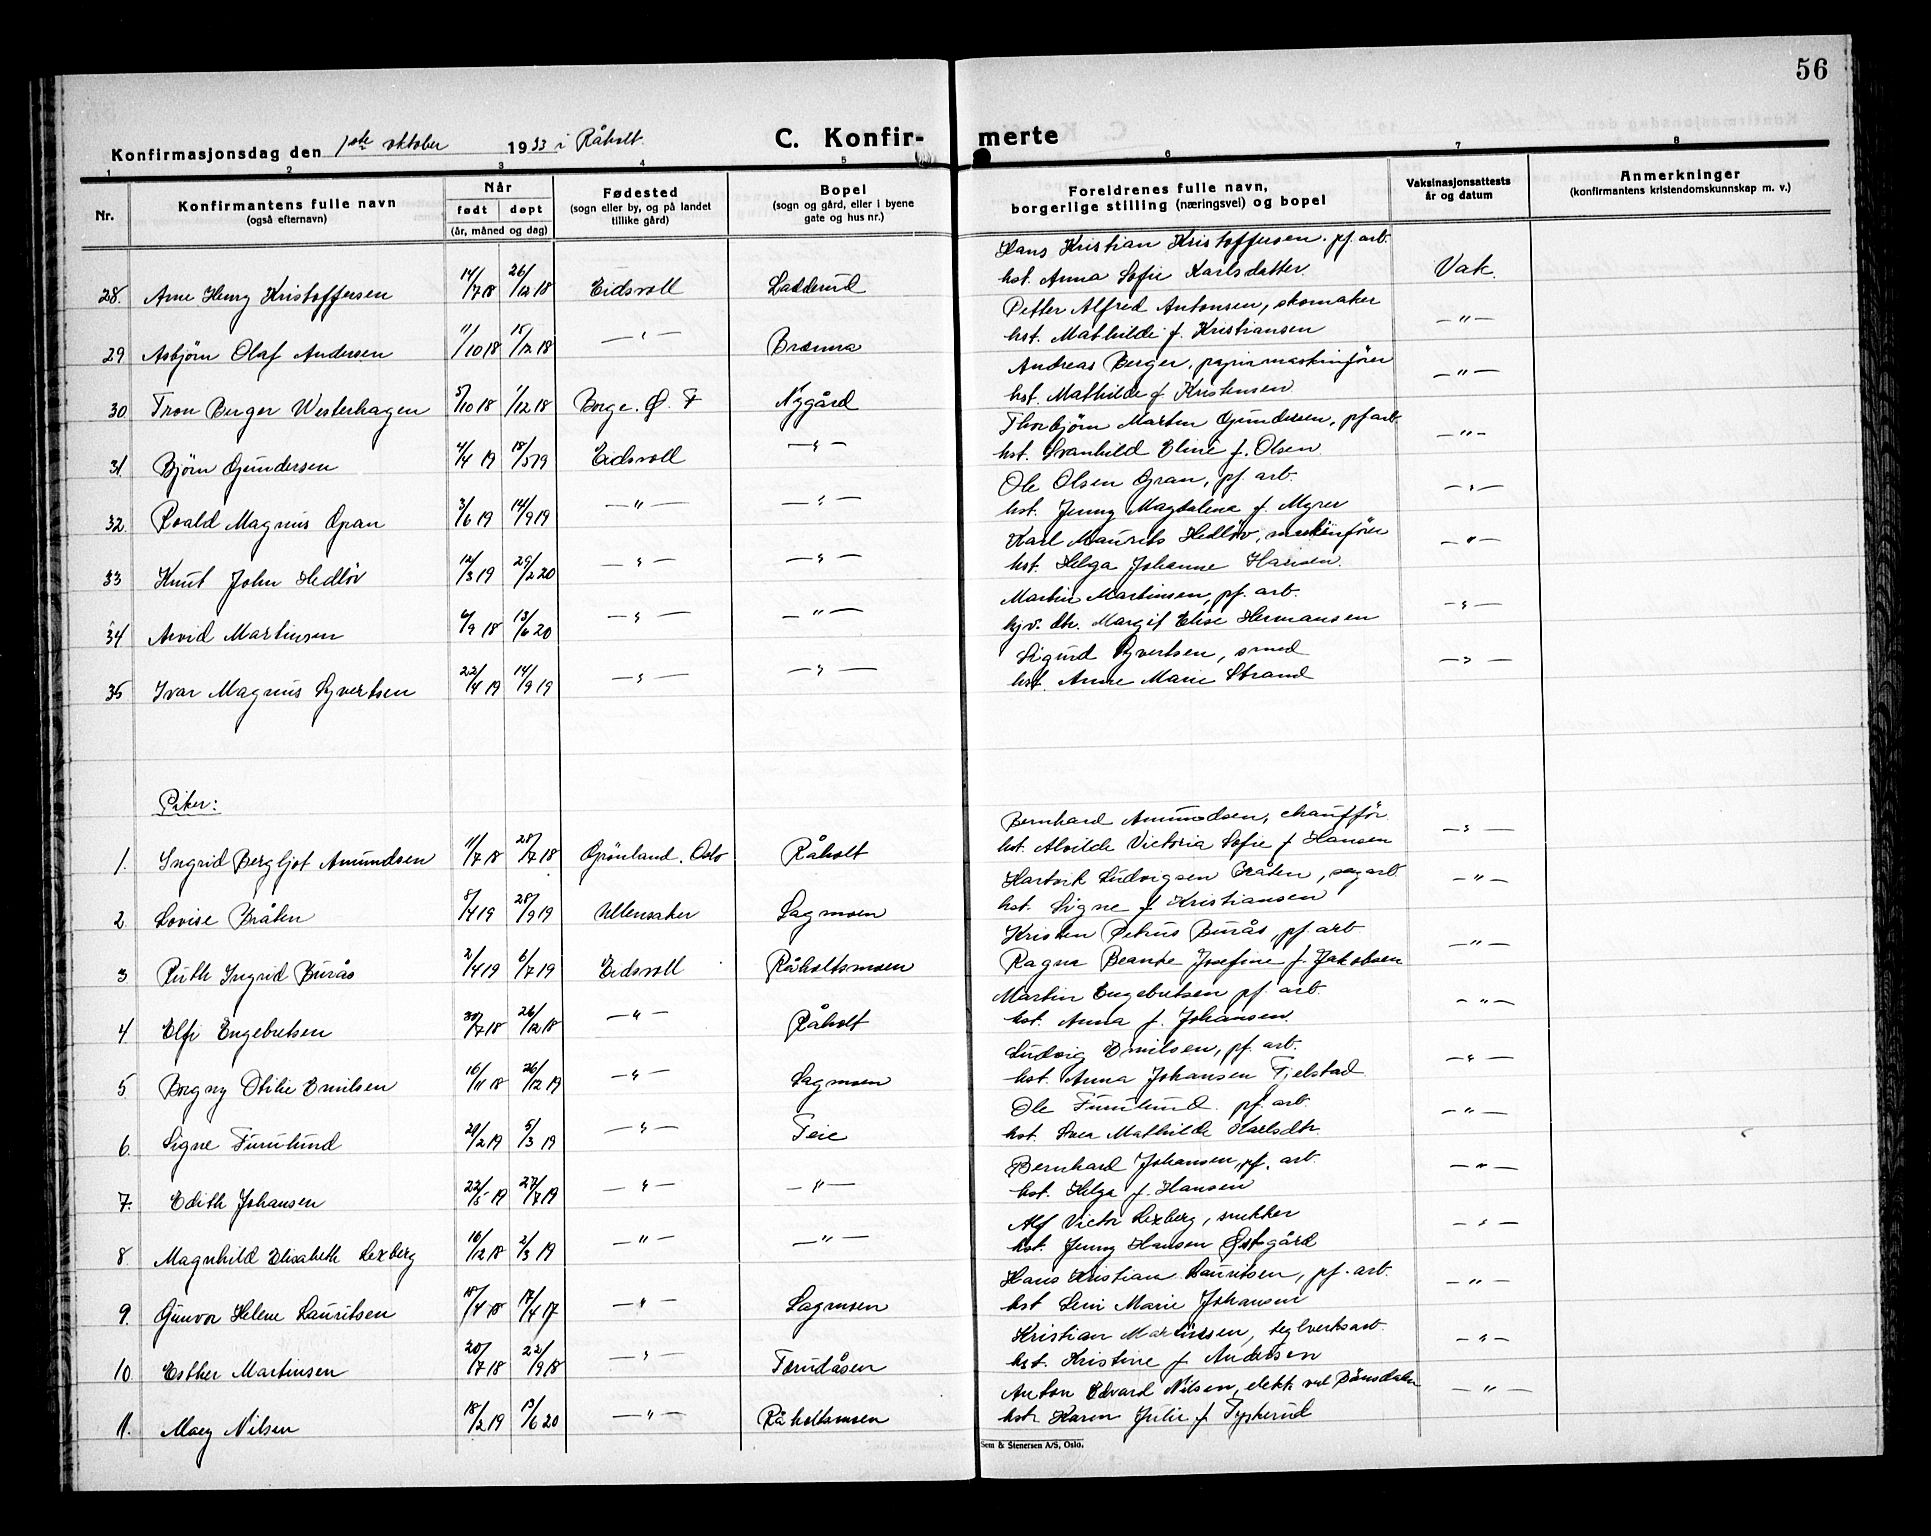 56
Konfirmasjonsdag den 1ste oktober 1933 i Råholt.
C. Konfirmerte
1 2 3 4 5 6 7 8
Nr.
Konfirmantens fulle navn
(også efternavn)
Når
født døpt
(år, måned og dag)
Fødested
(sogn eller by, og på landet
tillike gård)
Bopel
(sogn og gård, eller i byene
gate og hus nr.)
Foreldrenes fulle navn,
borgerlige stilling (næringsvei) og bopel
Vaksinasjonsattests
år og datum
Anmerkninger
(konfirmantens kristendomskunnskap m. v.)
Hans Kristian Kristoffersen. pf. arb.
28. Arne Henry Kristoffersen 14/7 18 26/12 18 Eidsvoll Ladderud hst. Anna Sofie Karlsdatter. Vak.
Petter Alfred Antonsen, skomaker
29 Asbjörn Olaf Andersen 11/10 18 15/12 18 —"— Brænna hst. Mathilde f. Kristiansen —"—
Andreas Berger, papirmaskinfører
30 Tron Berger Westerhagen 5/10 18 1/12 18 Borge. Ø. F Nygård hst. Mathilde f Kristensen —"—
Thorbjörn Martin Gundersen, pf arb.
31. Björn Gundersen 4/4 19 18/5 19 Eidsvoll —"— hst. Svanhild Eline f. Olsen —"—
Ole Olsen Gran, pf. arb.
32. Roald Magnus Gran 3/6 19 14/9 19 —"— —"— hst. Jenny Magdalena f. Myrer —"—
Karl Maurits Hedlöv, maskinfører
33 Knut John Hedlöv 12/3 19 29/2 20 —"— —"— hst. Helga Johanne Hansen. —"—
Martin Martinsen, pf. arb.
34 Arvid Martinsen 6/9 18 13/6 20 —"— —"— hjv. dtr. Margit Elise Hermansen —"—
Sigurd Syvertsen, smed
35 Ivar Magnus Syvertsen 22/4 19 14/9 19 —"— —"— hst. Anne Marie Strand —"—
Piker:
Bernhard Amundsen, chaufför.
1. Ingrid Bergljot Amundsen 11/7 18 28/7 18 Grönland. Oslo Råholt hst. Alvilde Victoria Sofie f Hansen —"—
Hartvik Ludvigsen Bråten, sagarb
2. Lovise Bråten 5/4 19 28/9 19 Ullensaker Sagmoen hst. Signe f Kristiansen —"—
Kristen Petrus Burås, pf. arb
3 Ruth Ingrid Burås 2/4 19 6/7 19 Eidsvoll Råholtsmoen Ragna Beante Josefine f. Jakobsen —"—
Martin Engebretsen pf. arb.
4. Elfi Engebretsen 30/7 18 26/12 18 —"— Råholt hst. Anna f. Johansen. —"—
Ludvig Emilsen, pf. arb.
5. Borgny Otilie Emilsen 16/11 18 26/12 19 —"— Sagmoen hst. Anna Johansen Fjelstad —"—
Ole Furulund. pf. arb.
6. Signe Furulund 20/2 19 5/3 19 —"— Teie hst. Svea Mathilde Karlsdtr. —"—
Bernhard Johansen, pf. arb.
7. Edith Johansen 22/5 19 27/7 19 —"— —"— hst. Helga f. Hansen —"—
Alf Victor Lexberg, snekker
8. Magnhild Elisabeth Lexberg 16/12 18 2/3 19 —"— —"— hst. Jenny Hansen Østsgård —"—
Hans Kristian Lauritsen, pf. arb.
9. Gunvor Helene Lauritsen 18/4 18 17/4 17 —"— Sagmoen hst Leni Marie Johansen —"—
Kristian Martinsen, teglverksarb.
10 Esther Martinsen 20/7 18 22/9 18 —"— Tærudåsen hst. Kristine f Andersen —"—
Anton Edvard Nilsen, elekt. ved Bönsdalen
11. Mary Nilsen 18/2 19 13/6 20 —"— Råholtsmoen hst. Karen Julie f Tyskerud —"—
Sem & Stenersen A/S, Oslo.